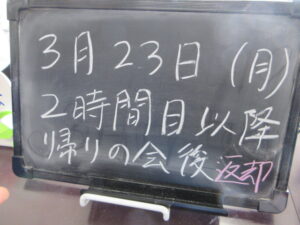 3月23日(月)
2時間目以降
帰りの会後返却